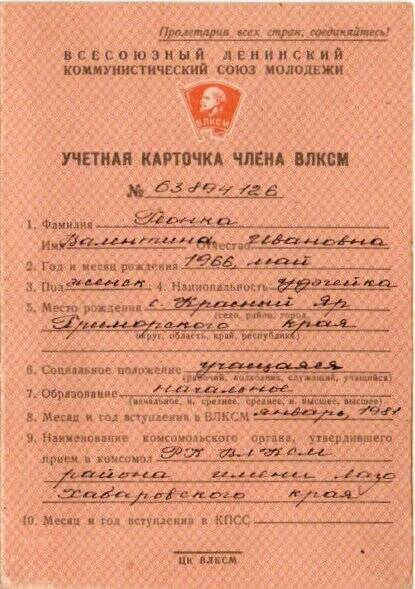 Пролетарии всех стран, соединяйтесь!
ВСЕСОЮЗНЫЙ ЛЕНИНСКИЙ
КОММУНИСТИЧЕСКИЙ СОЮЗ МОЛОДЕЖИ
ВЛКСМ
УЧЕТНАЯ КАРТОЧКА ЧЛЕНА ВЛКСМ
№ 63894126
1. Фамилия Геонка
Имя Валентина Отчество Ивановна
2. Год и месяц рождения 1966, май
3. Пол женск 4. Национальность удэгейка
5. Место рождения с. Красный Яр
(село, район, город,
Приморского края
округ, область, край, республика)
6. Социальное положение учащаяся
(рабочий, колхозник, служащий, учащийся)
7. Образование начальное
(начальное, н. среднее, среднее, н. высшее, высшее)
8. Месяц и год вступления в ВЛКСМ январь, 1981
9. Наименование комсомольского органа, утвердившего
прием в комсомол РК ВЛКСМ
района имени Лазо
Хабаровского края
10. Месяц и год вступления в КПСС
ЦК ВЛКСМ